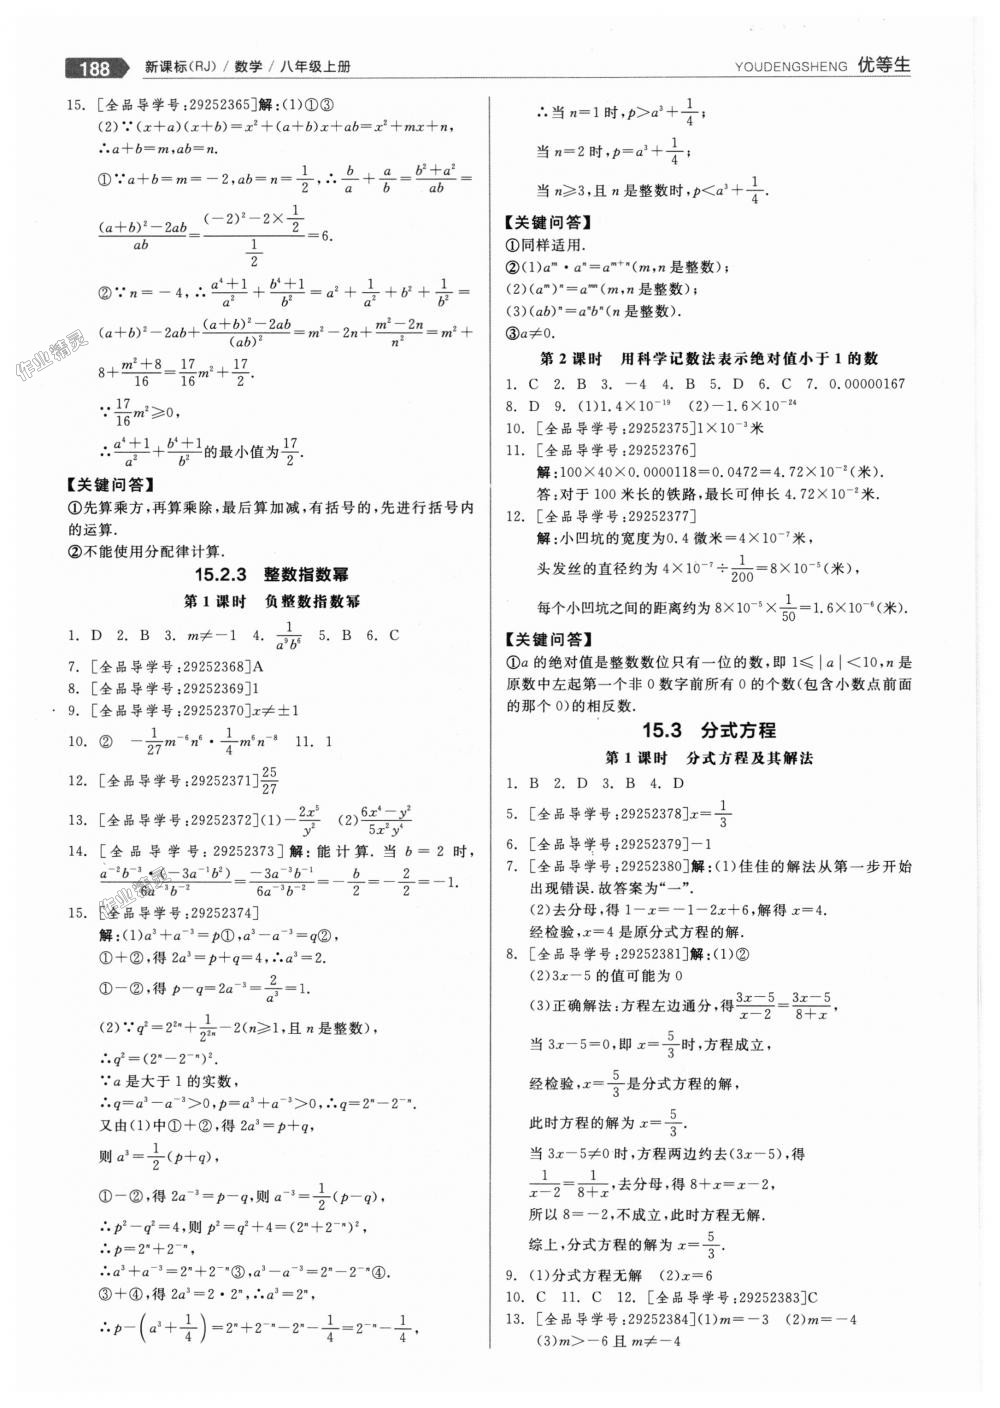 188 新课标(RJ) / 数学 / 八年级上册
YOUDENGSHENG 优等生
15. [全品导学号:29252365]解:(1)①③
(2)∵(x+a)(x+b)=x²+(a+b)x+ab=x²+mx+n,
∴a+b=m,ab=n.
①∵a+b=m=-2,ab=n=1/2,∴b/a+a/b=(b²+a²)/ab=
((a+b)²-2ab)/ab=((-2)²-2×1/2)/(1/2)=6.
②∵n=-4,∴(a⁴+1)/a²+(b⁴+1)/b²=a²+1/a²+b²+1/b²=
(a+b)²-2ab+((a+b)²-2ab)/(ab)²=m²-2n+(m²-2n)/n²=m²+
8+(m²+8)/16=17/16m²+17/2.
∵17/16m²≥0,
∴(a⁴+1)/a²+(b⁴+1)/b²的最小值为17/2.
【关键问答】
①先算乘方,再算乘除,最后算加减,有括号的,先进行括号内
的运算.
②不能使用分配律计算.
15.2.3 整数指数幂
第1课时 负整数指数幂
1. D 2. B 3. m≠-1 4. 1/(a⁹b⁶) 5. B 6. C
7. [全品导学号:29252368]A
8. [全品导学号:29252369]1
9. [全品导学号:29252370]x≠±1
10. ② -1/27m⁻⁶n⁶·1/4m⁶n⁻⁸ 11. 1
12. [全品导学号:29252371]25/27
13. [全品导学号:29252372](1)-2x⁵/y² (2)(6x⁴-y²)/(5x²y⁴)
14. [全品导学号:29252373]解:能计算.当b=2时,
(a⁻²b⁻³·(-3a⁻¹b²))/(6a⁻³b⁻²)=(-3a⁻³b⁻¹)/(6a⁻³b⁻²)=-b/2=-2/2=-1.
15. [全品导学号:29252374]
解:(1)a³+a⁻³=p①,a³-a⁻³=q②,
①+②,得2a³=p+q=4,∴a³=2.
①-②,得p-q=2a⁻³=2/a³=1.
(2)∵q²=2²ⁿ+1/2²ⁿ-2(n≥1,且n是整数),
∴q²=(2ⁿ-2⁻ⁿ)².
∵a是大于1的实数,
∴q=a³-a⁻³>0,p=a³+a⁻³>0,∴q=2ⁿ-2⁻ⁿ.
又由(1)中①+②,得2a³=p+q,
则a³=1/2(p+q),
①-②,得2a⁻³=p-q,则a⁻³=1/2(p-q),
∴p²-q²=4,则p²=q²+4=(2ⁿ+2⁻ⁿ)²,
∴p=2ⁿ+2⁻ⁿ,
∴a³+a⁻³=2ⁿ+2⁻ⁿ③,a³-a⁻³=2ⁿ-2⁻ⁿ④.
③+④,得2a³=2·2ⁿ,∴a³=2ⁿ,
∴p-(a³+1/4)=2ⁿ+2⁻ⁿ-2ⁿ-1/4=2⁻ⁿ-1/4,
∴当n=1时,p>a³+1/4;
当n=2时,p=a³+1/4;
当n≥3,且n是整数时,p<a³+1/4.
【关键问答】
①同样适用.
②(1)aᵐ·aⁿ=aᵐ⁺ⁿ(m,n是整数);
(2)(aᵐ)ⁿ=aᵐⁿ(m,n是整数);
(3)(ab)ⁿ=aⁿbⁿ(n是整数).
③a≠0.
第2课时 用科学记数法表示绝对值小于1的数
1. C 2. B 3. -4 4. B 5. D 6. C 7. 0.00000167
8. D 9. (1)1.4×10⁻¹⁹ (2)-1.6×10⁻²⁴
10. [全品导学号:29252375]1×10⁻³米
11. [全品导学号:29252376]
解:100×40×0.0000118=0.0472=4.72×10⁻²(米).
答:对于100米长的铁路,最长可伸长4.72×10⁻²米.
12. [全品导学号:29252377]
解:小凹坑的宽度为0.4微米=4×10⁻⁷米,
头发丝的直径约为4×10⁻⁷÷1/200=8×10⁻⁵(米),
每个小凹坑之间的距离约为8×10⁻⁵×1/50=1.6×10⁻⁶(米).
【关键问答】
①a的绝对值是整数数位只有一位的数,即1≤|a|<10,n是
原数中左起第一个非0数字前所有0的个数(包含小数点前面
的那个0)的相反数.
15.3 分式方程
第1课时 分式方程及其解法
1. B 2. D 3. B 4. D
5. [全品导学号:29252378]x=1/3
6. [全品导学号:29252379]-1
7. [全品导学号:29252380]解:(1)佳佳的解法从第一步开始
出现错误.故答案为“一”.
(2)去分母,得1-x=-1-2x+6,解得x=4.
经检验,x=4是原分式方程的解.
8. [全品导学号:29252381]解:(1)②
(2)3x-5的值可能为0
(3)正确解法:方程左边通分,得(3x-5)/(x-2)=(3x-5)/(8+x),
当3x-5=0,即x=5/3时,方程成立,
经检验,x=5/3是分式方程的解,
此时方程的解为x=5/3.
当3x-5≠0时,方程两边约去(3x-5),得
1/(x-2)=1/(8+x),去分母,得8+x=x-2,
所以8=-2,不成立,此时方程无解.
综上,分式方程的解为x=5/3.
9. (1)分式方程无解 (2)x=6
10. C 11. C 12. [全品导学号:29252383]C
13. [全品导学号:29252384](1)m=-3 (2)m=-4
(3)m>-6且m≠-4
作业精灵
作业精灵